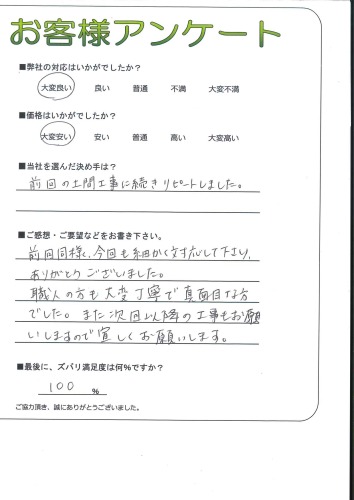 お客様アンケート
■弊社の対応はいかがでしたか？
大変良い 良い 普通 不満 大変不満
■価格はいかがでしたか？
大変安い 安い 普通 高い 大変高い
■当社を選んだ決め手は？
前回の土間工事に続きリピートしました。
■ご感想・ご要望などをお書き下さい。
前回同様、今回も細かく対応して下さり、
ありがとうございました。
職人の方も大変丁寧で真面目な方
でした。また次回以降の工事もお願
いしますので宜しくお願いします。
■最後に、ズバリ満足度は何%ですか？
100 %
ご協力頂き、誠にありがとうございました。